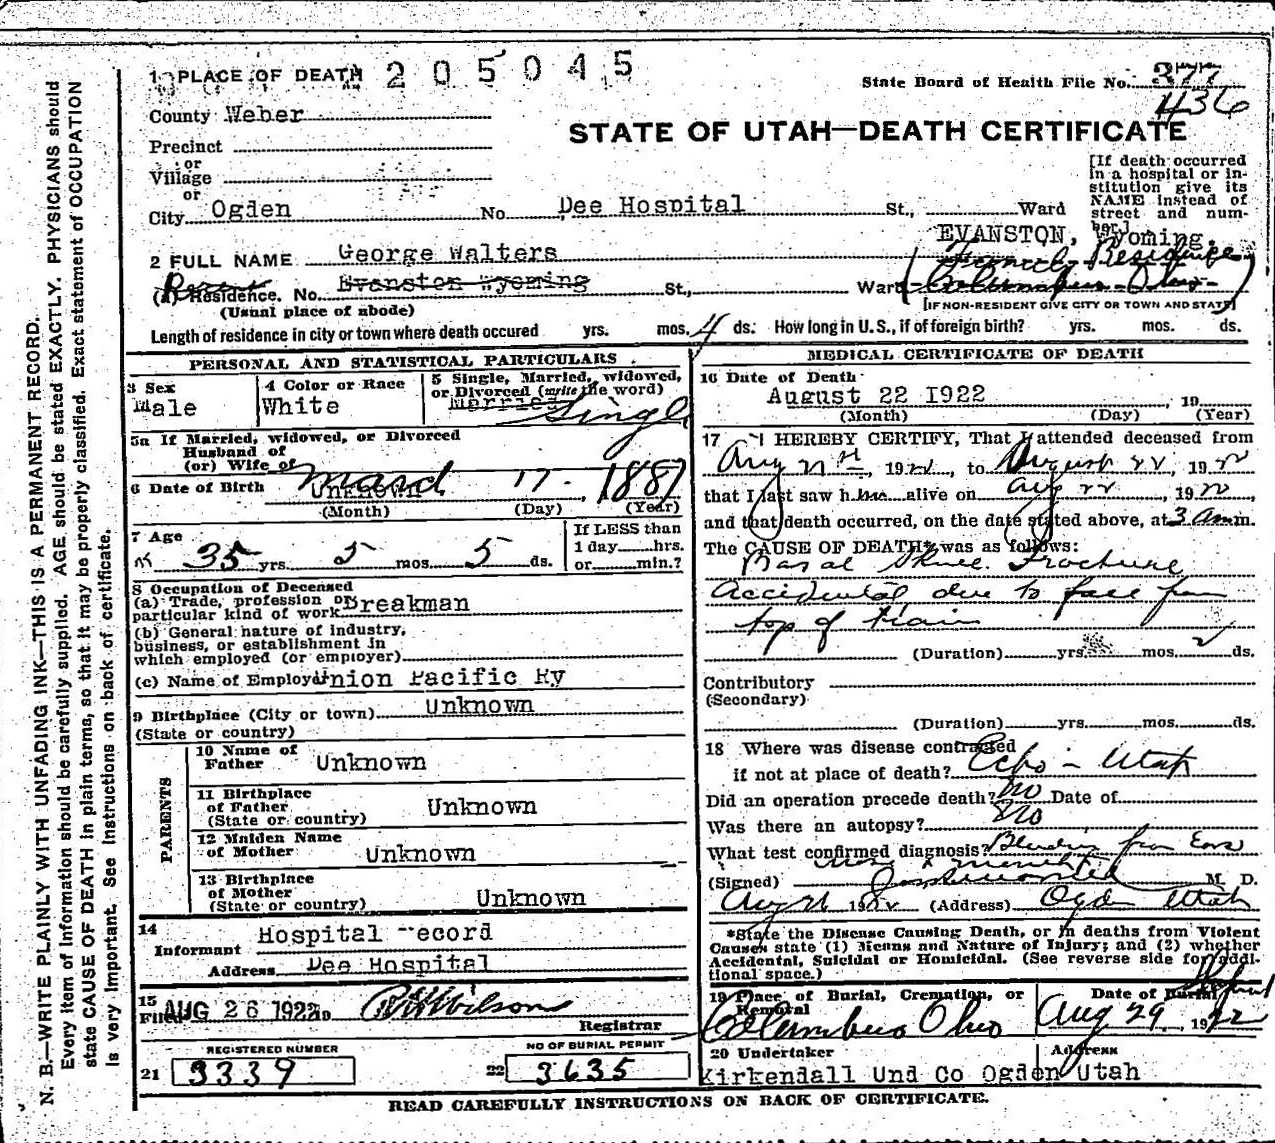 1 PLACE OF DEATH 205045
State Board of Health File No. 377
436
County Weber
STATE OF UTAH—DEATH CERTIFICATE
Precinct
or
Village
or
City Ogden No. Dee Hospital St., Ward
[If death occurred
in a hospital or in-
stitution give its
NAME instead of
street and num-
ber.]
EVANSTON, Wyoming.
2 FULL NAME George Walters
Family Residence
(a) Residence. No. Evanston Wyoming St., Ward Columbus Ohio
(Usual place of abode) [IF NON-RESIDENT GIVE CITY OR TOWN AND STATE]
Length of residence in city or town where death occured yrs. mos. 4 ds. How long in U. S., if of foreign birth? yrs. mos. ds.
PERSONAL AND STATISTICAL PARTICULARS
3 Sex
Male
4 Color or Race
White
5 Single, Married, widowed,
or Divorced (write the word)
Married Single
5a If Married, widowed, or Divorced
Husband of
(or) Wife of
6 Date of Birth Unknown March 17 1887
(Month) (Day) (Year)
7 Age
35 yrs. 5 mos. 5 ds.
If LESS than
1 day hrs.
or min.?
8 Occupation of Deceased
(a) Trade, profession or
particular kind of work Breakman
(b) General nature of industry,
business, or establishment in
which employed (or employer)
(c) Name of Employer Union Pacific Ry
9 Birthplace (City or town) Unknown
(State or country)
PARENTS
10 Name of
Father Unknown
11 Birthplace
of Father
(State or country) Unknown
12 Maiden Name
of Mother Unknown
13 Birthplace
of Mother
(State or country) Unknown
14
Informant Hospital Record
Address Dee Hospital
15
Filed AUG 26 1922 Wilson
Registrar
REGISTERED NUMBER
21 3339
NO OF BURIAL PERMIT
22 3635
MEDICAL CERTIFICATE OF DEATH
16 Date of Death
August 22 1922, 19
(Month) (Day) (Year)
17 I HEREBY CERTIFY, That I attended deceased from
Aug 21st, 1922, to August 22, 1922
that I last saw him alive on Aug 22, 1922,
and that death occurred, on the date stated above, at 3 am m.
The CAUSE OF DEATH* was as follows:
Basal Skull Fracture
Accidental due to fall from
top of train
(Duration) yrs. mos. 2 ds.
Contributory
(Secondary)
(Duration) yrs. mos. ds.
18 Where was disease contracted
if not at place of death? Echo - Utah
Did an operation precede death? No Date of
Was there an autopsy? No
What test confirmed diagnosis? Bleeding from Ears
nose & mouth
(Signed) M. D.
Aug 26 1922 (Address) Ogden Utah
*State the Disease Causing Death, or in deaths from Violent
Causes state (1) Means and Nature of Injury; and (2) whether
Accidental, Suicidal or Homicidal. (See reverse side for addi-
tional space.)
19 Place of Burial, Cremation, or
Removal
Columbus Ohio
Date of Burial
Aug 29, 1922
20 Undertaker Address
Kirkendall Und Co Ogden Utah
READ CAREFULLY INSTRUCTIONS ON BACK OF CERTIFICATE.
N. B.—WRITE PLAINLY WITH UNFADING INK—THIS IS A PERMANENT RECORD.
Every item of information should be carefully supplied. AGE should be stated EXACTLY. PHYSICIANS should
state CAUSE OF DEATH in plain terms, so that it may be properly classified. Exact statement of OCCUPATION
is very important. See instructions on back of certificate.